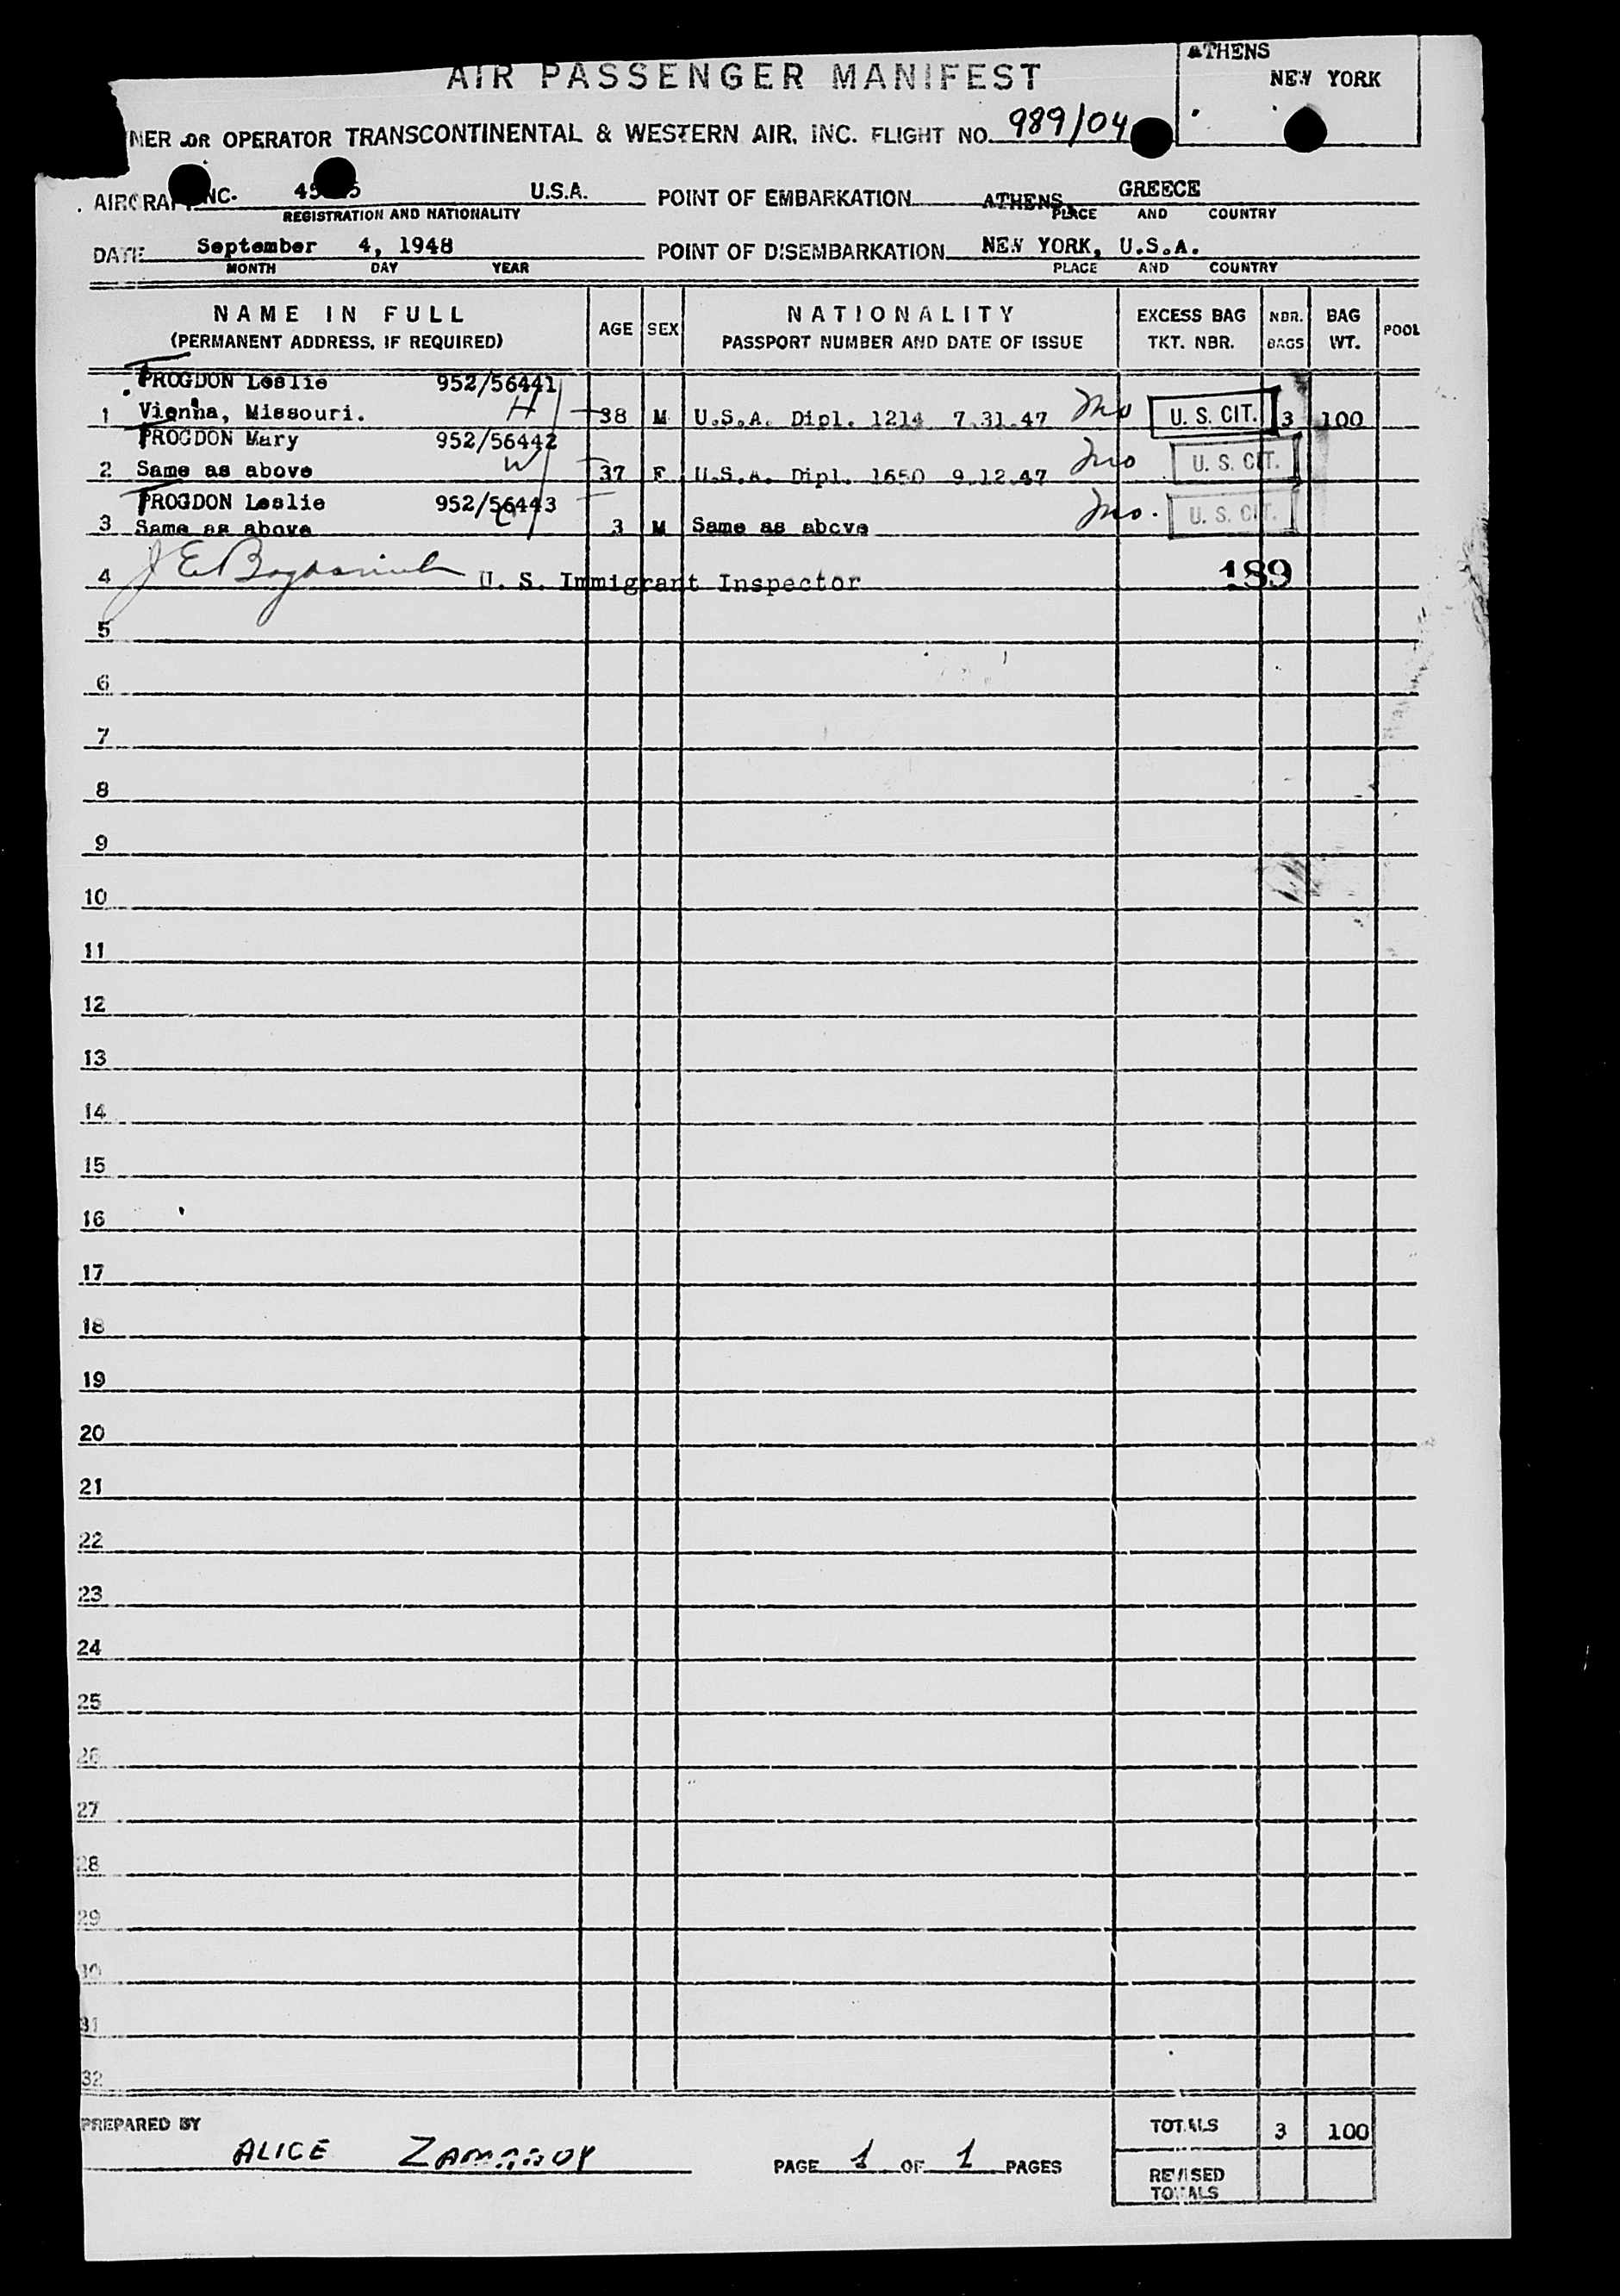 ATHENS
NEW YORK
AIR PASSENGER MANIFEST
NER OR OPERATOR TRANSCONTINENTAL & WESTERN AIR, INC. FLIGHT NO. 989/04
AIRCRAFT NC- U.S.A. POINT OF EMBARKATION ATHENS, GREECE
REGISTRATION AND NATIONALITY PLACE AND COUNTRY
DATE September 4, 1948 POINT OF DISEMBARKATION NEW YORK, U.S.A.
MONTH DAY YEAR PLACE AND COUNTRY
NAME IN FULL AGE SEX NATIONALITY EXCESS BAG NBR. BAG POOL
(PERMANENT ADDRESS, IF REQUIRED) PASSPORT NUMBER AND DATE OF ISSUE TKT. NBR. BAGS WT.
PROGDON Leslie 952/56441
1 Vienna, Missouri. H 38 M U.S.A. Dipl. 1214 7.31.47 Mo U. S. CIT. 3 100
PROGDON Mary 952/56442
2 Same as above W 37 F U.S.A. Dipl. 1650 9.12.47 Mo U. S. CIT.
PROGDON Leslie 952/56443
3 Same as above 3 M Same as above Mo. U. S. CIT.
4 U. S. Immigrant Inspector 189
5
6
7
8
9
10
11
12
13
14
15
16
17
18
19
20
21
22
23
24
25
26
27
28
29
30
31
32
PREPARED BY ALICE
PAGE 1 OF 1 PAGES
TOTALS 3 100
REVISED
TOTALS